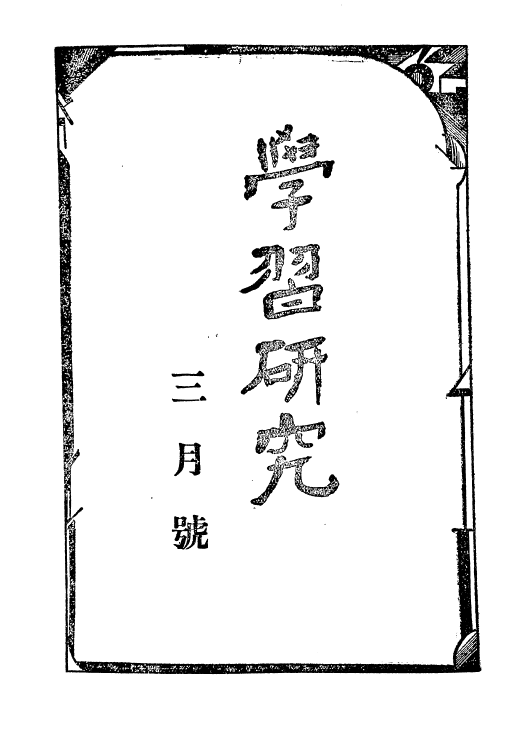 學習研究
三月號